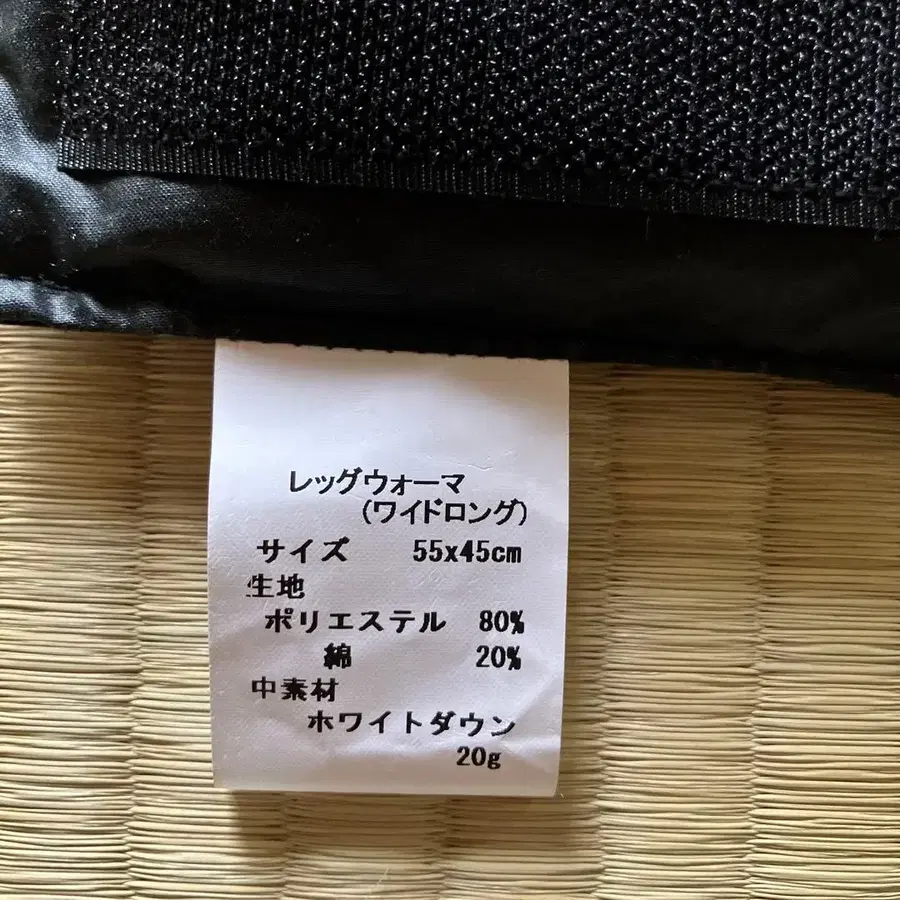 レッグウォーマ
(ワイドロング)
サイズ 55x45cm
生地
ポリエステル 80%
綿 20%
中素材
ホワイトダウン
20g